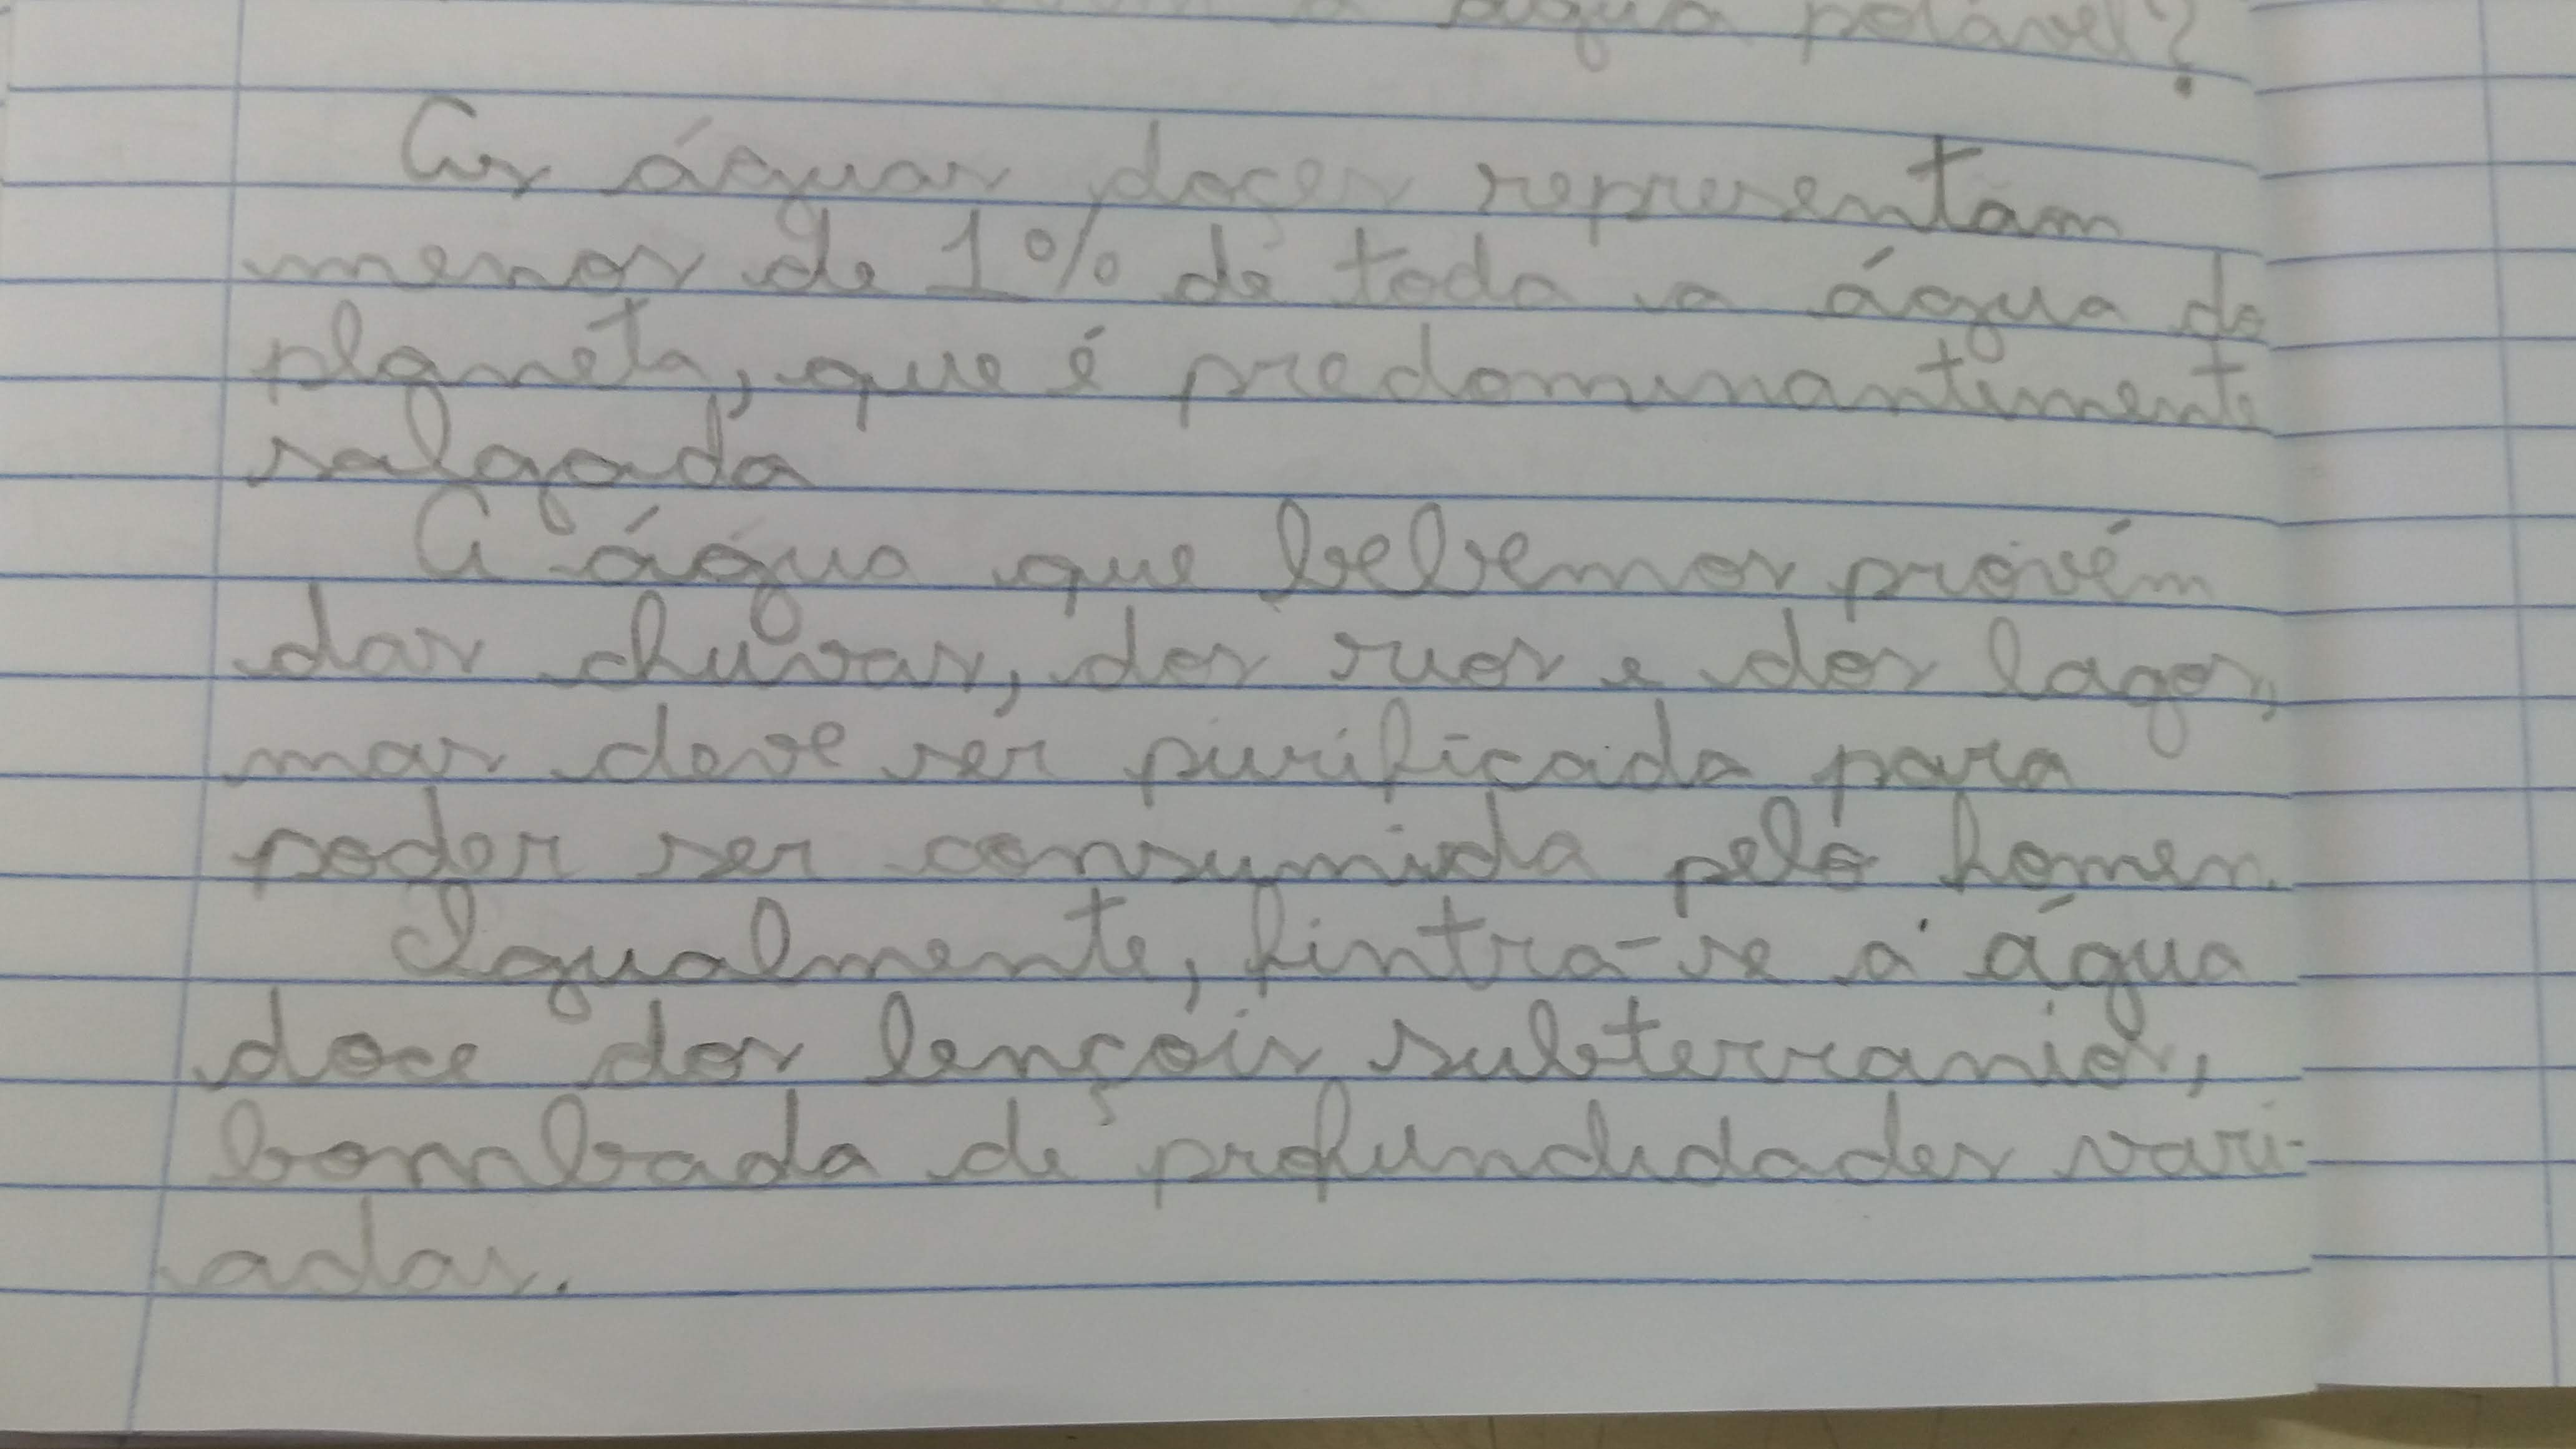 água potável?
As águas doçes representam
menos de 1% de toda a água do
planeta, que é predominantimente
salgada
A água que bebemos provém
das chuvas, dos rios e dos lagos,
mas deve ser purificada para
poder ser consumida pelo homem.
Igualmente, fintra-se a água
doce dos lençois subterranios,
bombada de profundidades vari-
adas.